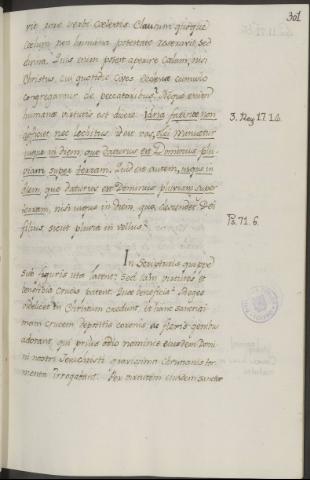 301
rit pane verbi coelestis. Clausum quisque
coelum non humana potentate reseravit, sed
divina. Quis enim potest aperire Coelum, nisi
Christus, cui quotidie Cives Ecclesiae cumulo
congregantur de peccatoribus? Neque enim
humanae virtutis est dicere: Idria farinae non
deficiet, nec lechitus olei vas,
usque in diem, quo daturus est Dominus plu-
viam super terram. Quid est autem, usque in
diem, quo daturus est Dominus pluviam super
terram, nisi usque in diem, quo descendet Dei
filius sicut pluvia in vellus?
3. Reg. 17. 14.
Ps. 71. 6.
In Scripturis quippe
sub figuris ista latent; sed iam virtutes et
beneficia Crucis patent. Quae beneficia? Reges
videlicet in Christum credunt, et hanc sacratis-
simam crucem depositis coronis, ac flexis genibus
adorant, qui prius odio nominis eiusdem Domi-
ni nostri Jesuchristi gravissima Christianis tor-
menta irrogabant. Per virtutem eiusdem sanctae